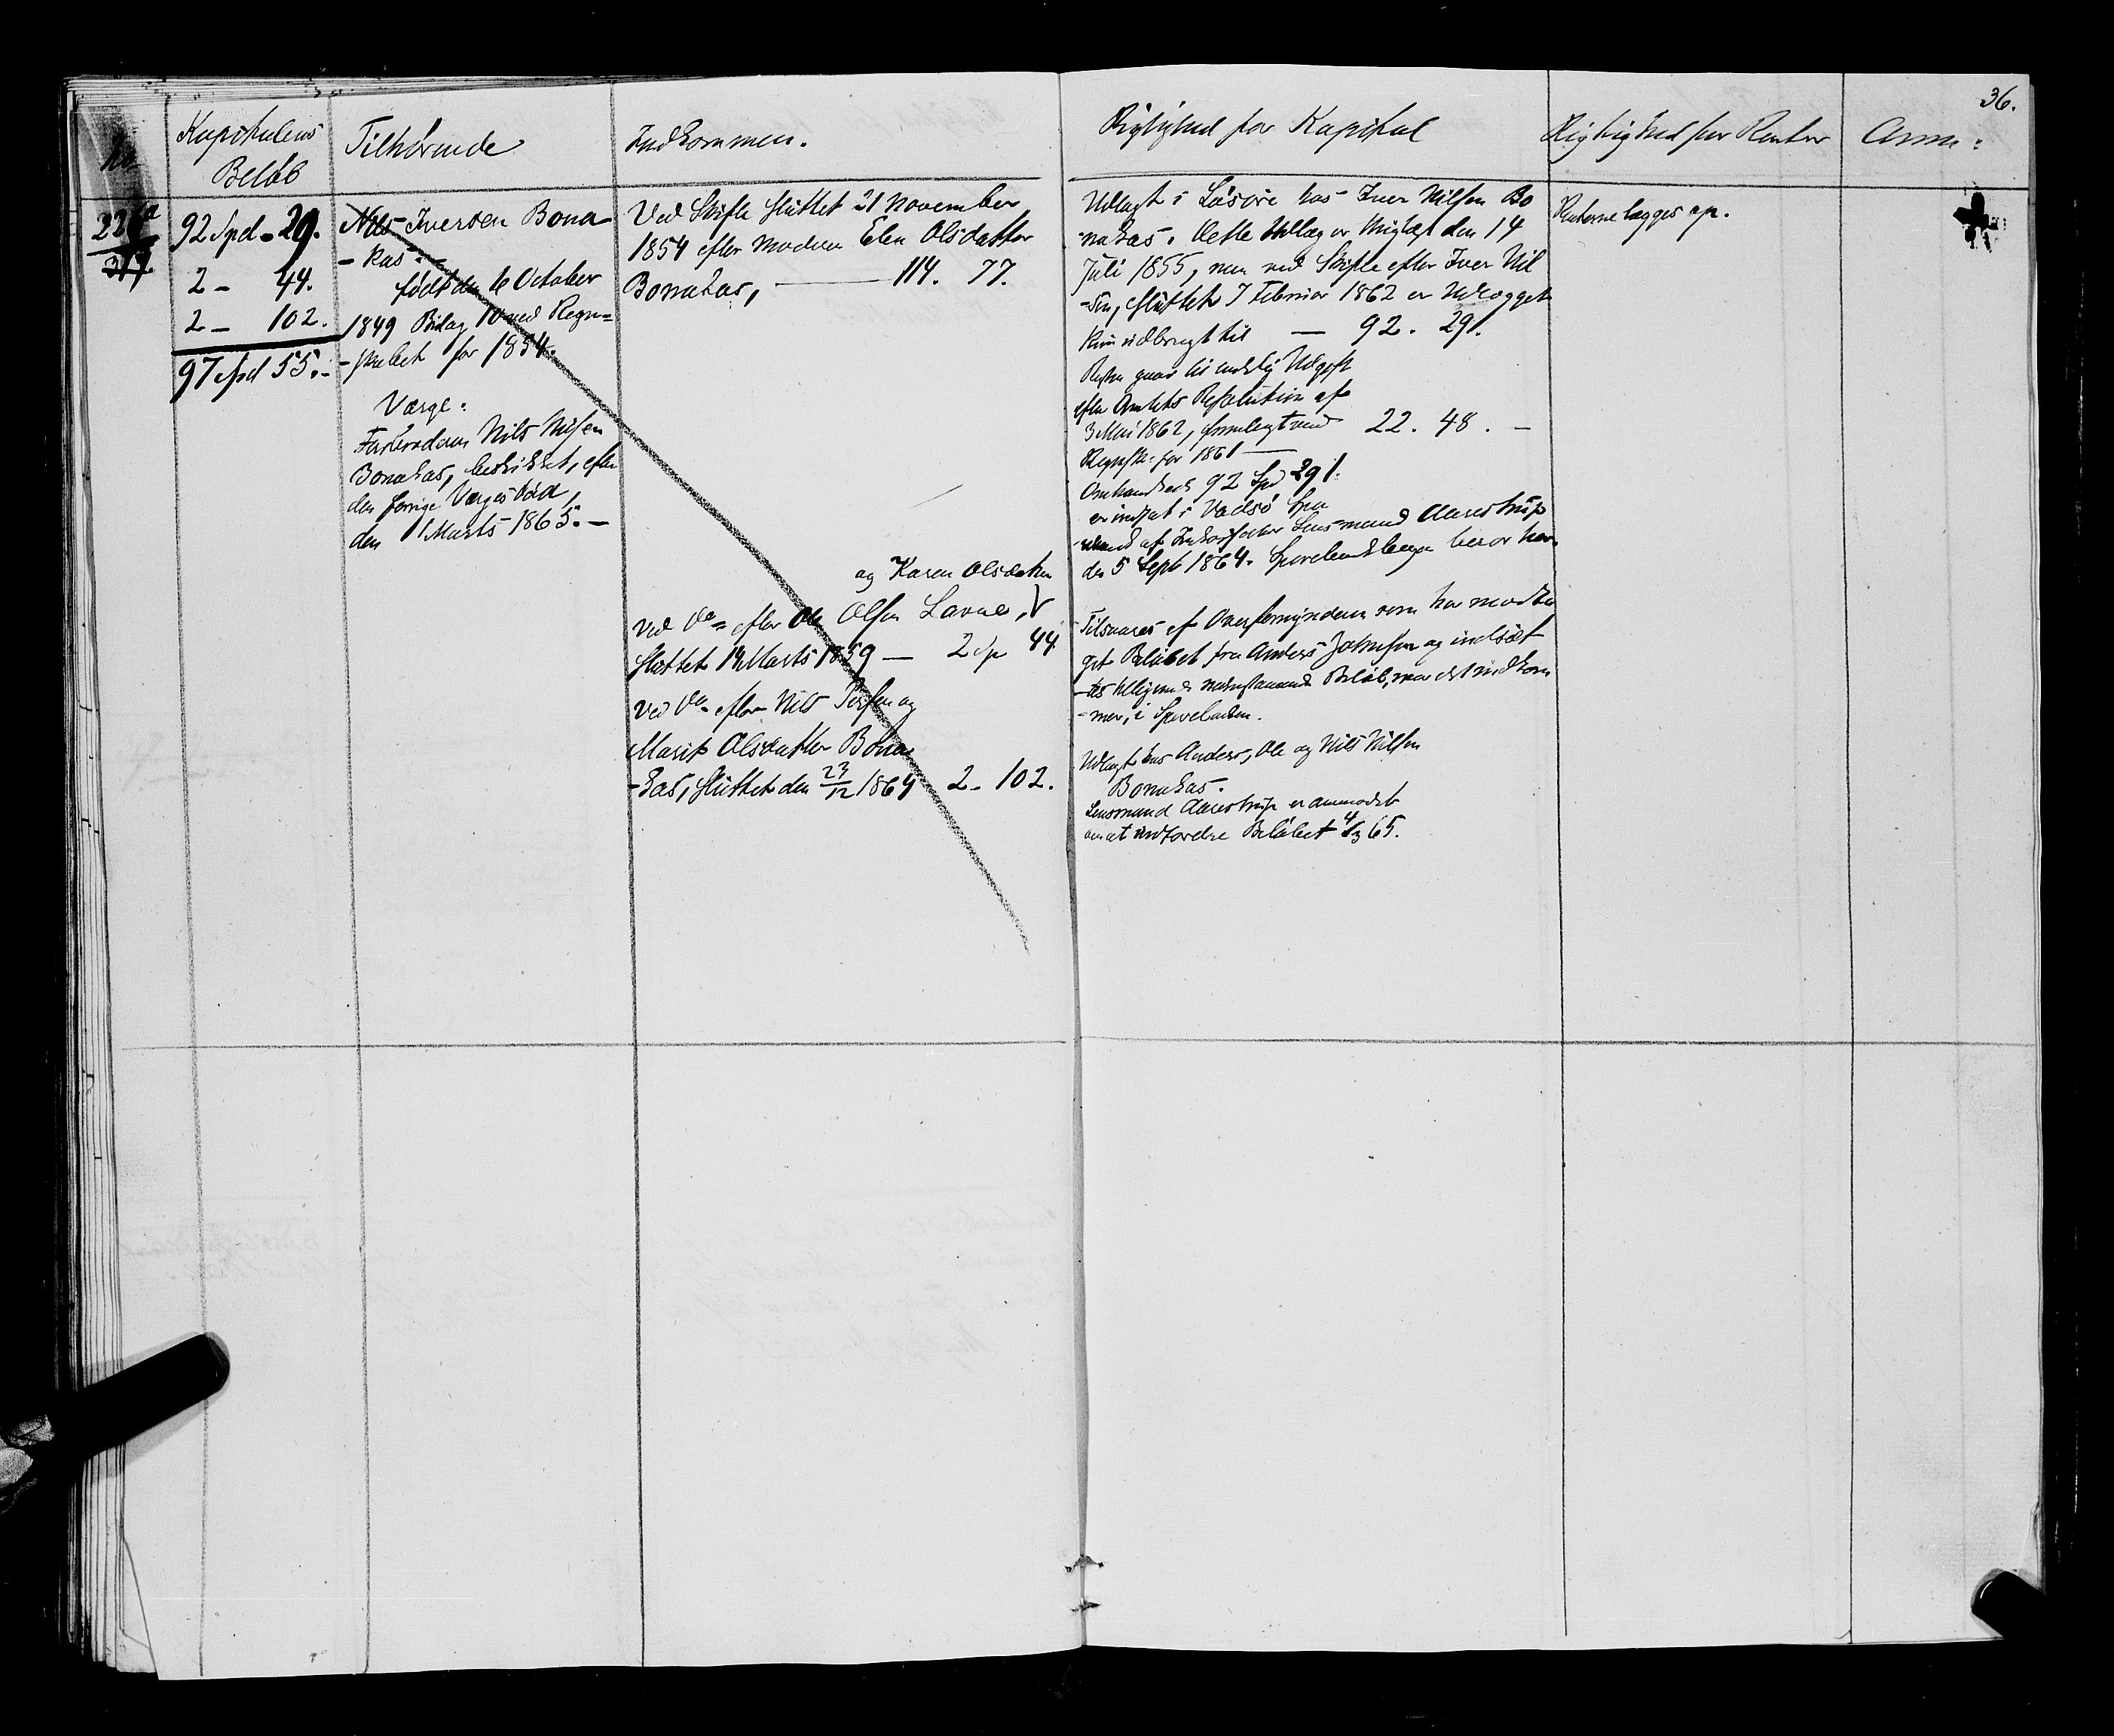 36.
No
Kapitalens
Beløb
Tilhørende
Indkommen.
Rigtighed for Kapital
Rigtighed for Renter
Anm:
226a
317.
92 Spd - 29.
2 - 44.
2 - 102.
97 Spd 55.-
Nils Iversen Bona-
-kas.-
født den 6 October
1849 Bilag 10 ved Regn=
-skabet for 1854.
Værge:
Farbroderen Nils Nilsen
Bonakas, beskikket, efter
den forrige Værges Død,
den 1 Marts 1865.-
Ved Skifte sluttet 21 November
1854 efter Moderen Elen Olsdatter
Bonakas, — 114. 77.
og Karen Olsdatter
Ved Do= efter Ole Olsen Lavnes, V
sluttet 14 Marts 1859 — 2 Sp 44
Ved Do- efter Nils Persen og
Marit Olsdatter Bona
-kas, sluttet den 23/12 1864 2 - 102.
Udlagt i Løsøre hos Iver Nilsen Bo
nakas. Dette Udlæg er thinglæst den 14
Juli 1855, men ved Skifte efter Iver Nil
-sen, sluttet 7 Februar 1862 er Udlægget
kun udbragt til — 92. 29.
Resten gaar til endelig Udgift
efter Amtets Resolution af
3 Mai 1862, fremlagt med 22. 48. -
Regnsk: for 1861 —
Omhandlede 92 Spd 29 s.
er indsat i Vadsø Spa
af Lensmand Aarestrup
den 5 Sept 1864. Sparebankbogen beror her.
Tilsvares af Overformynderen som har modta
get Beløbet fra Anders Johnsen og indsæt
-tes tilligemed nedenstaaende Beløb, naar det indkom
-mer, i Sparebanken.
Udlagt hos Anders, Ole og Nils Nilsen
Bonakas.
Lensmand Aarestrup er anmodet
om at indfordre Beløbet 4/3 65.
Renterne lægges op.